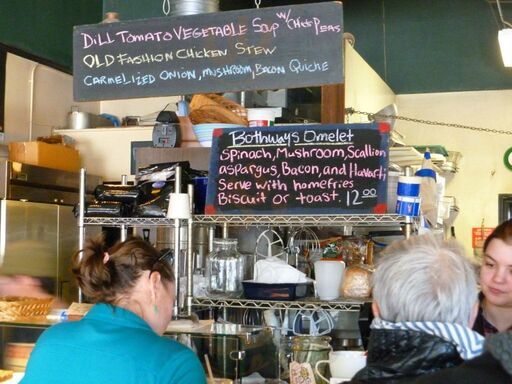 Dill Tomato Vegetable Soup w/ Chick Peas
Old Fashion Chicken Stew
Carmelized Onion, Mushroom, Bacon Quiche
Bothways Omelet
Spinach, Mushroom, Scallion
asparagus, Bacon, and Havarti
Serve with homefries
Biscuit or toast. 12.00